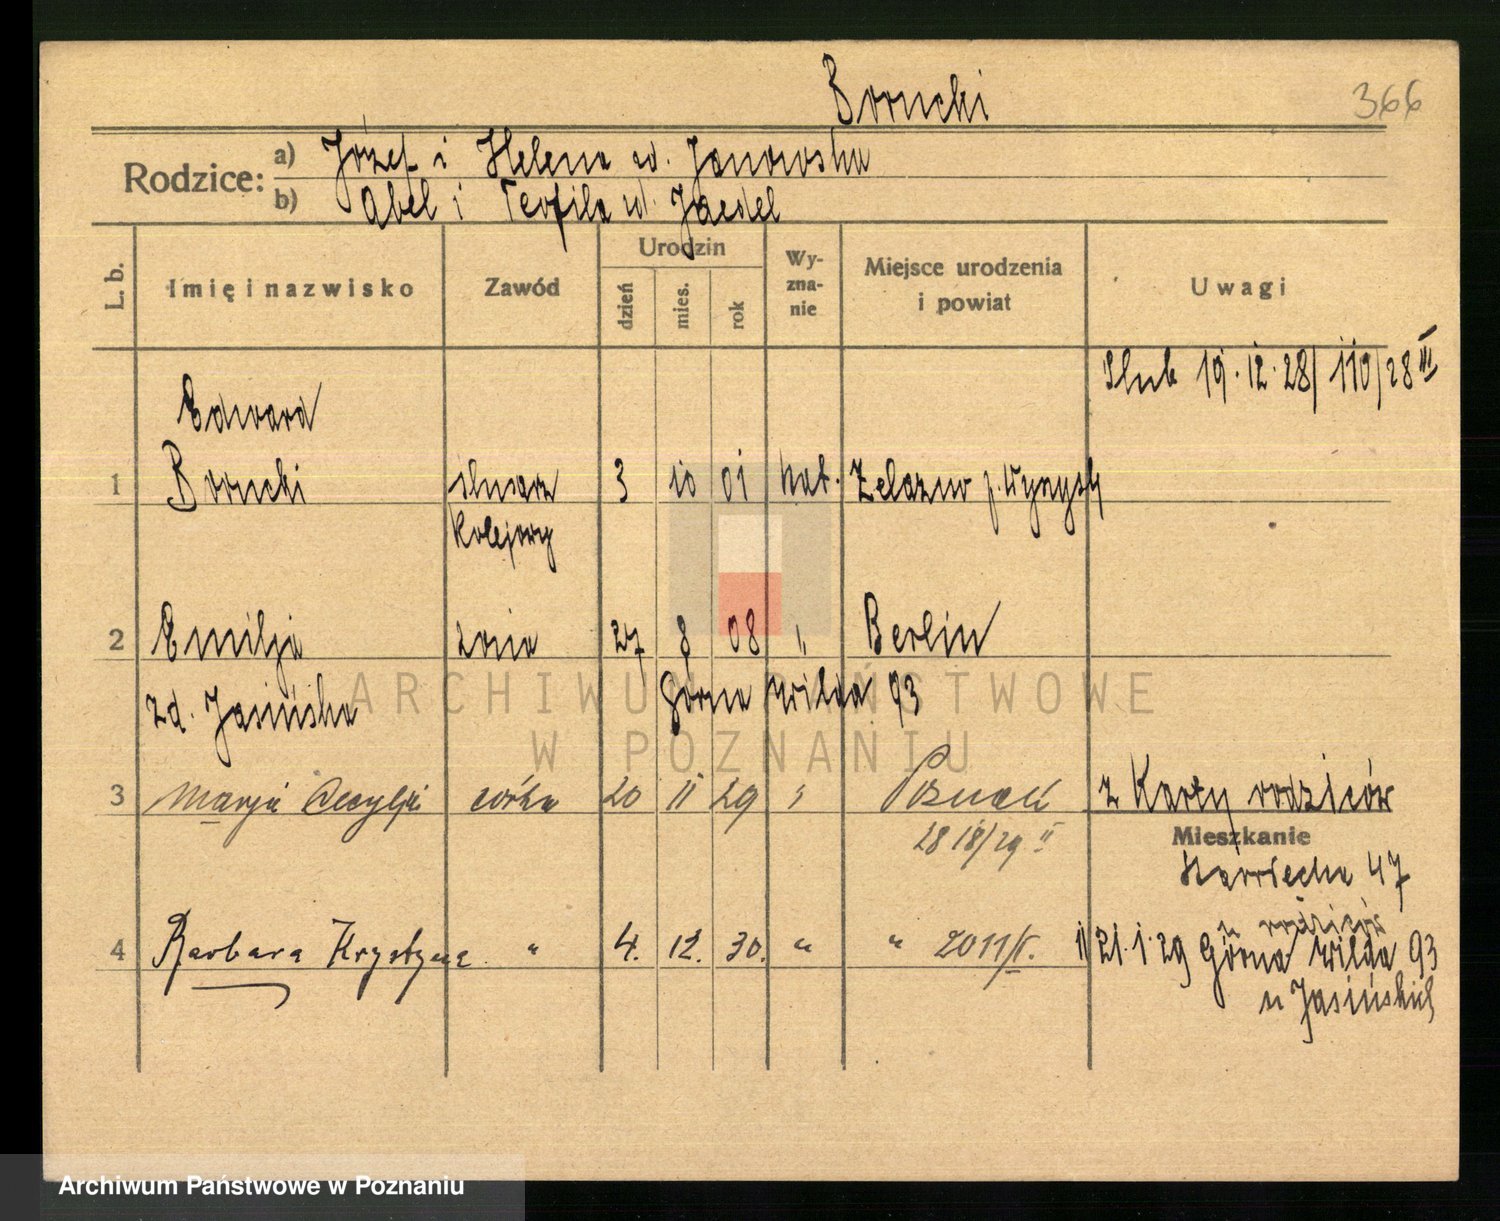 Borucki
366
Rodzice:
a) Józef i Helena zd. Janowska
b) Abel i Teofila zd. Jaedel
L. b.
Imię i nazwisko
Zawód
Urodzin
dzień
mies.
rok
Wy-
zna-
nie
Miejsce urodzenia
i powiat
Uwagi
Ślub 19.12.28/ 110/28 III
Edward
1 Borucki ślusarz 3 10 01 kat. Żelazno p. Wyrzysk
kolejowy
2 Emilja żona 27 8 08 " Berlin
zd. Jasińska Górna Wilda 93
3 Marja Cecylja córka 20 11 29 " Poznań z Karty rodziców
Mieszkanie
Kórnicka 47
u rodziców
4 Barbara Krystyna " 4. 12. 30. " " 2011/V. 1/ 21.1.29 Górna Wilda 93
u Jasińskich
ARCHIWUM PAŃSTWOWE
W POZNANIU
Archiwum Państwowe w Poznaniu